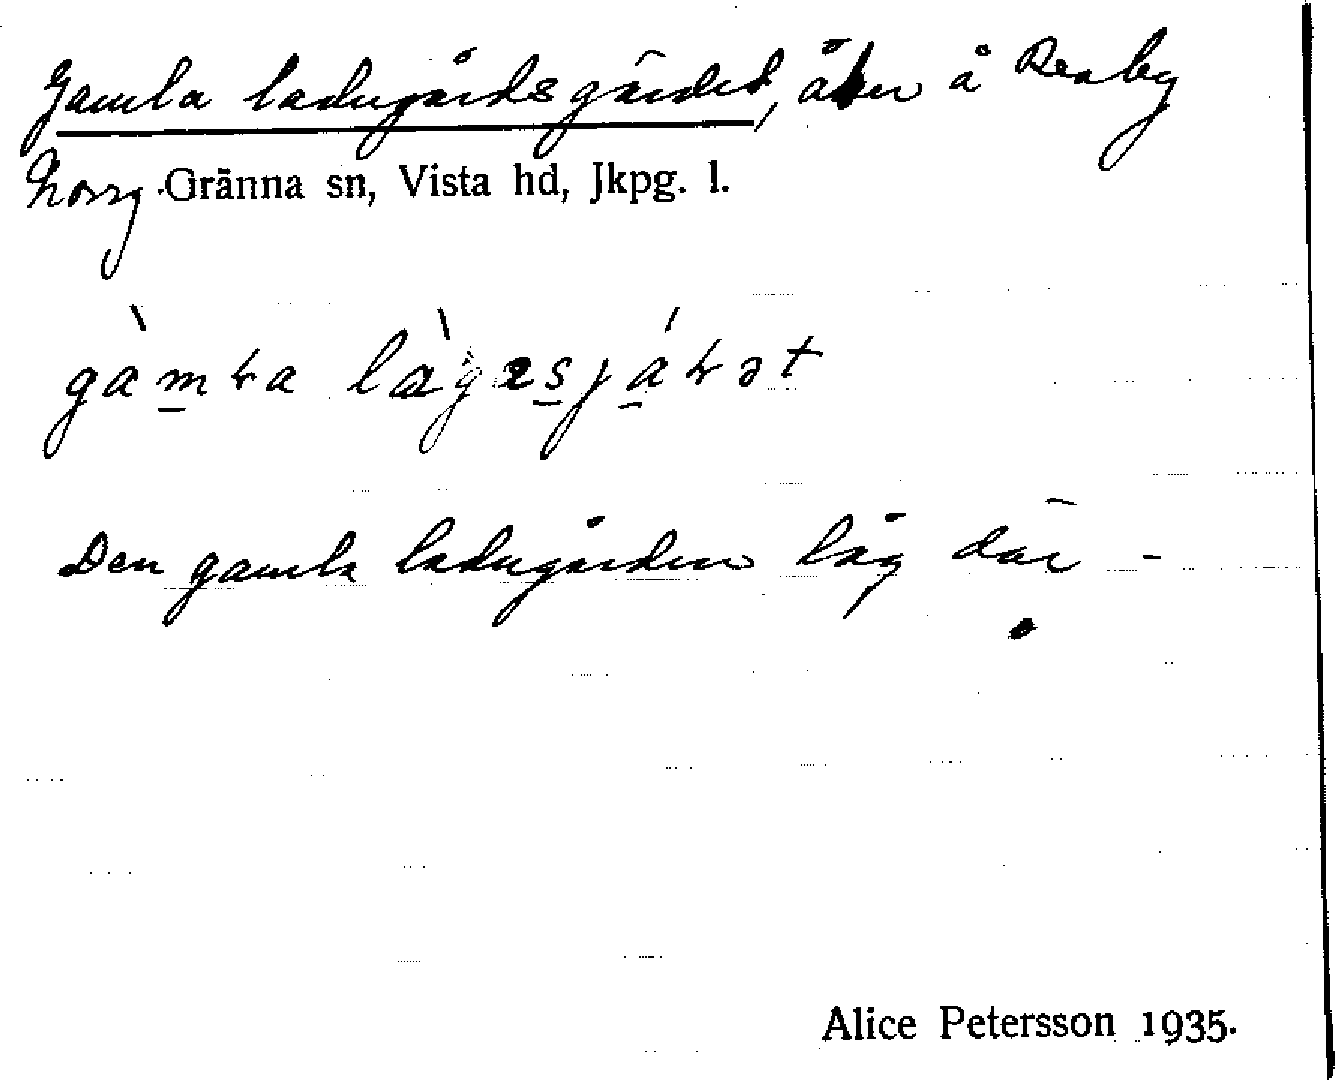 Gamla ladugårdsgärdet, åker å Reaby
Norrg. Gränna sn, Vista hd, Jkpg. l.
Den gamla ladugården låg där -
Alice Petersson 1935.